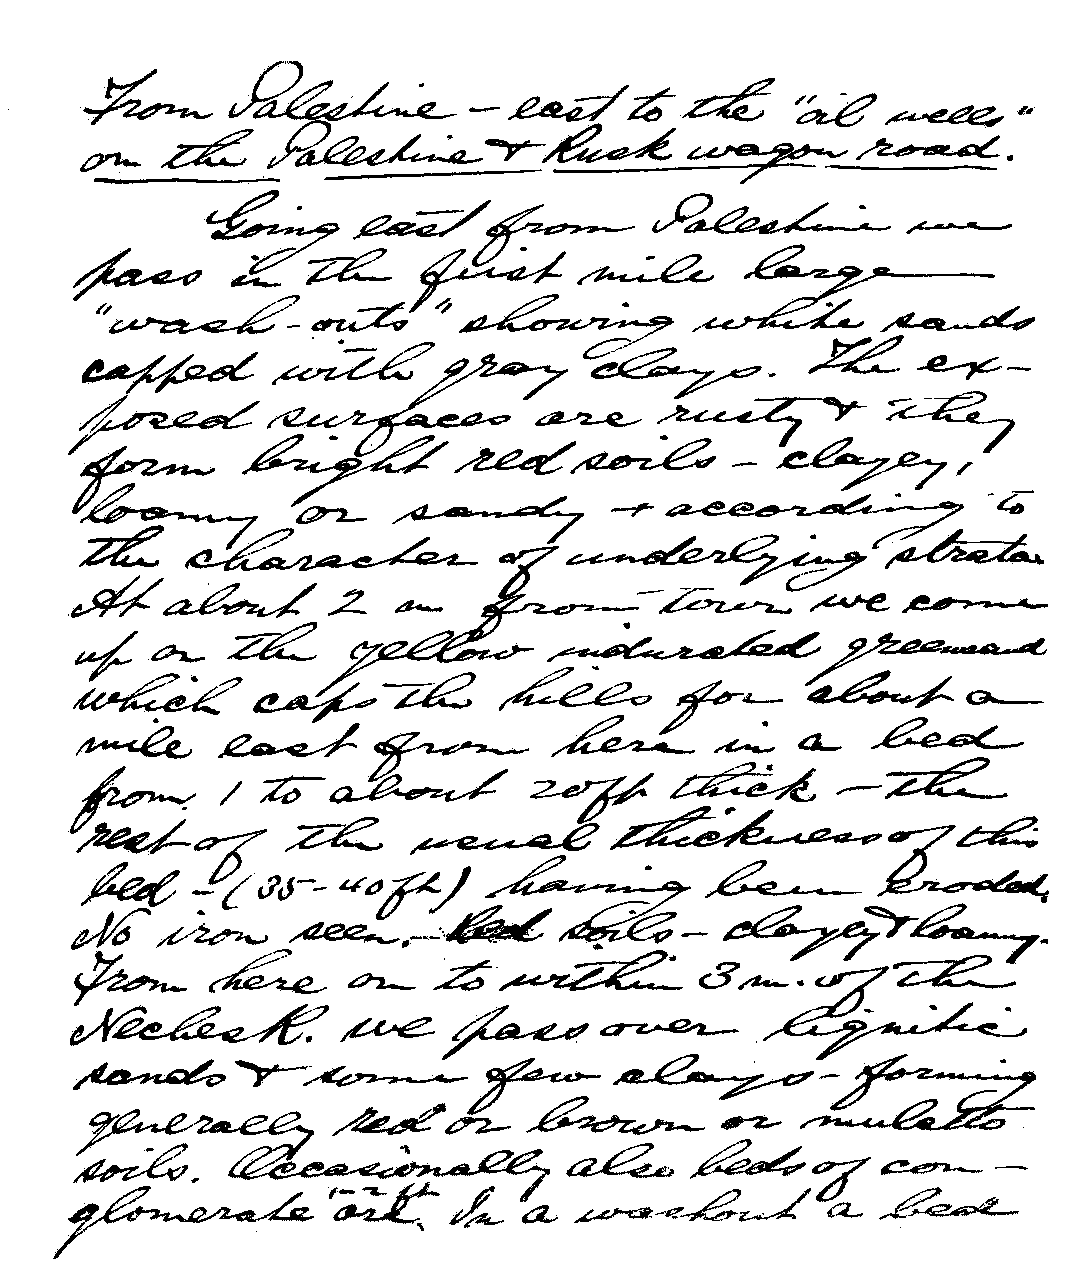 From Palestine – east to the "oil wells"
on the Palestine & Rusk wagon road.
Going east from Palestine we
pass in the first mile large
"wash-outs" showing white sands
capped with gray clays. The ex-
posed surfaces are rusty & they
form bright red soils – clayey,
loamy or sandy + according to
the character of underlying strata
At about 2 m from town we come
up on the yellow indurated greensand
which caps the hills for about a
mile east from here in a bed
from 1 to about 20 ft thick – the
rest of the usual thickness of this
bed – (35-40 ft) having been eroded.
No iron seen. – Red soils – clayey & loamy.
From here on to within 3 m. of the
Neches R. we pass over lignitic
sands & some few clays – forming
generally red or brown or mulatto
soils. Occasionally also beds of con-
glomerate ore 1-2 ft. In a washout a bed